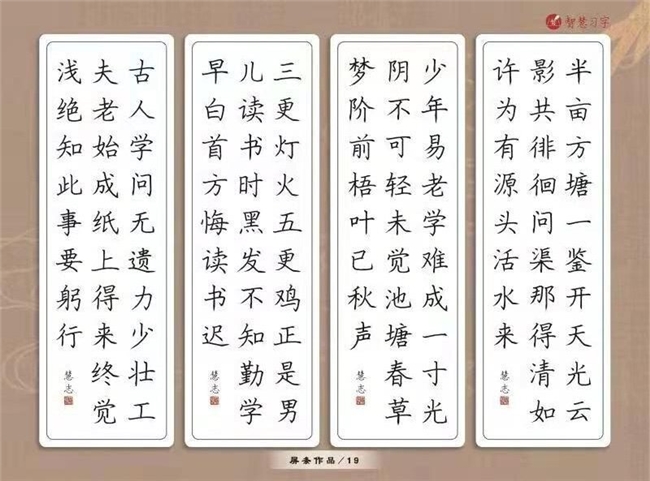 智慧习字
半亩方塘一鉴开天光云
影共徘徊问渠那得清如
许为有源头活水来
慧志
少年易老学难成一寸光
阴不可轻未觉池塘春草
梦阶前梧叶已秋声
慧志
三更灯火五更鸡正是男
儿读书时黑发不知勤学
早白首方悔读书迟
慧志
古人学问无遗力少壮工
夫老始成纸上得来终觉
浅绝知此事要躬行
慧志
屏条作品/19